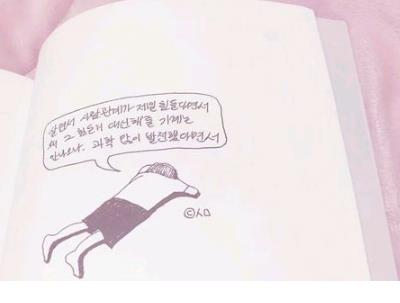 살면서 사람관계가 제일 힘들다면서
왜 그 힘든거 대신해줄 기계는
안나오나. 과학 많이 발전했다면서
©시ㅁ